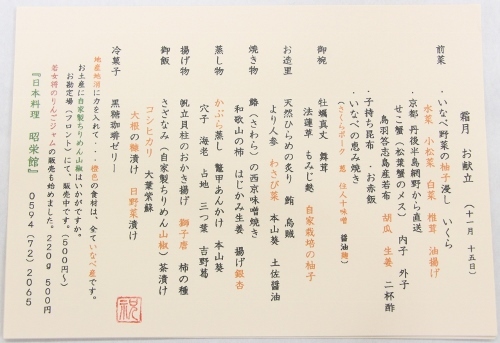 霜月　お献立　（十一月　十五日）
前菜　・いなべ野菜の柚子浸し　いくら
水菜　小松菜　白菜　椎茸　油揚げ
・京都　丹後半島網野から直送
せこ蟹（松葉蟹のメス）　内子　外子
鳥羽答志島産若布　胡瓜　生姜　二杯酢
・子持ち昆布　・お赤飯
・いなべの恵み焼き
（さくらポーク　葱　仕人十味噌　醤油麹）
御椀　牡蠣真丈　舞茸
法蓮草　もみじ麩　自家栽培の柚子
お造里　天然ひらめの炙り　鮪　烏賊
より人参　わさび菜　本山葵　土佐醤油
焼き物　鰆（さわら）の西京味噌焼き
和歌山の柿　はじかみ生姜　揚げ銀杏
蒸し物　かぶら蒸し　鼈甲あんかけ　本山葵
穴子　海老　占地　三つ葉　吉野葛
揚げ物　帆立貝柱のおかき揚げ　獅子唐　柿の種
御飯　さざなみ（自家製ちりめん山椒）茶漬け
コシヒカリ　大葉紫蘇
大根の糠漬け　日野菜漬け
冷菓子　黒糖珈琲ゼリー
地産地消に力を入れて・・・橙色の食材は、全ていなべ産です。
お土産に自家製ちりめん山椒はいかがですか。
お勘定場（フロント）にて、販売中です。（500円～）
若女将のりんごジャムの販売も始めました。220g　500円
『日本料理　昭栄館』　0594（72）2065
祝